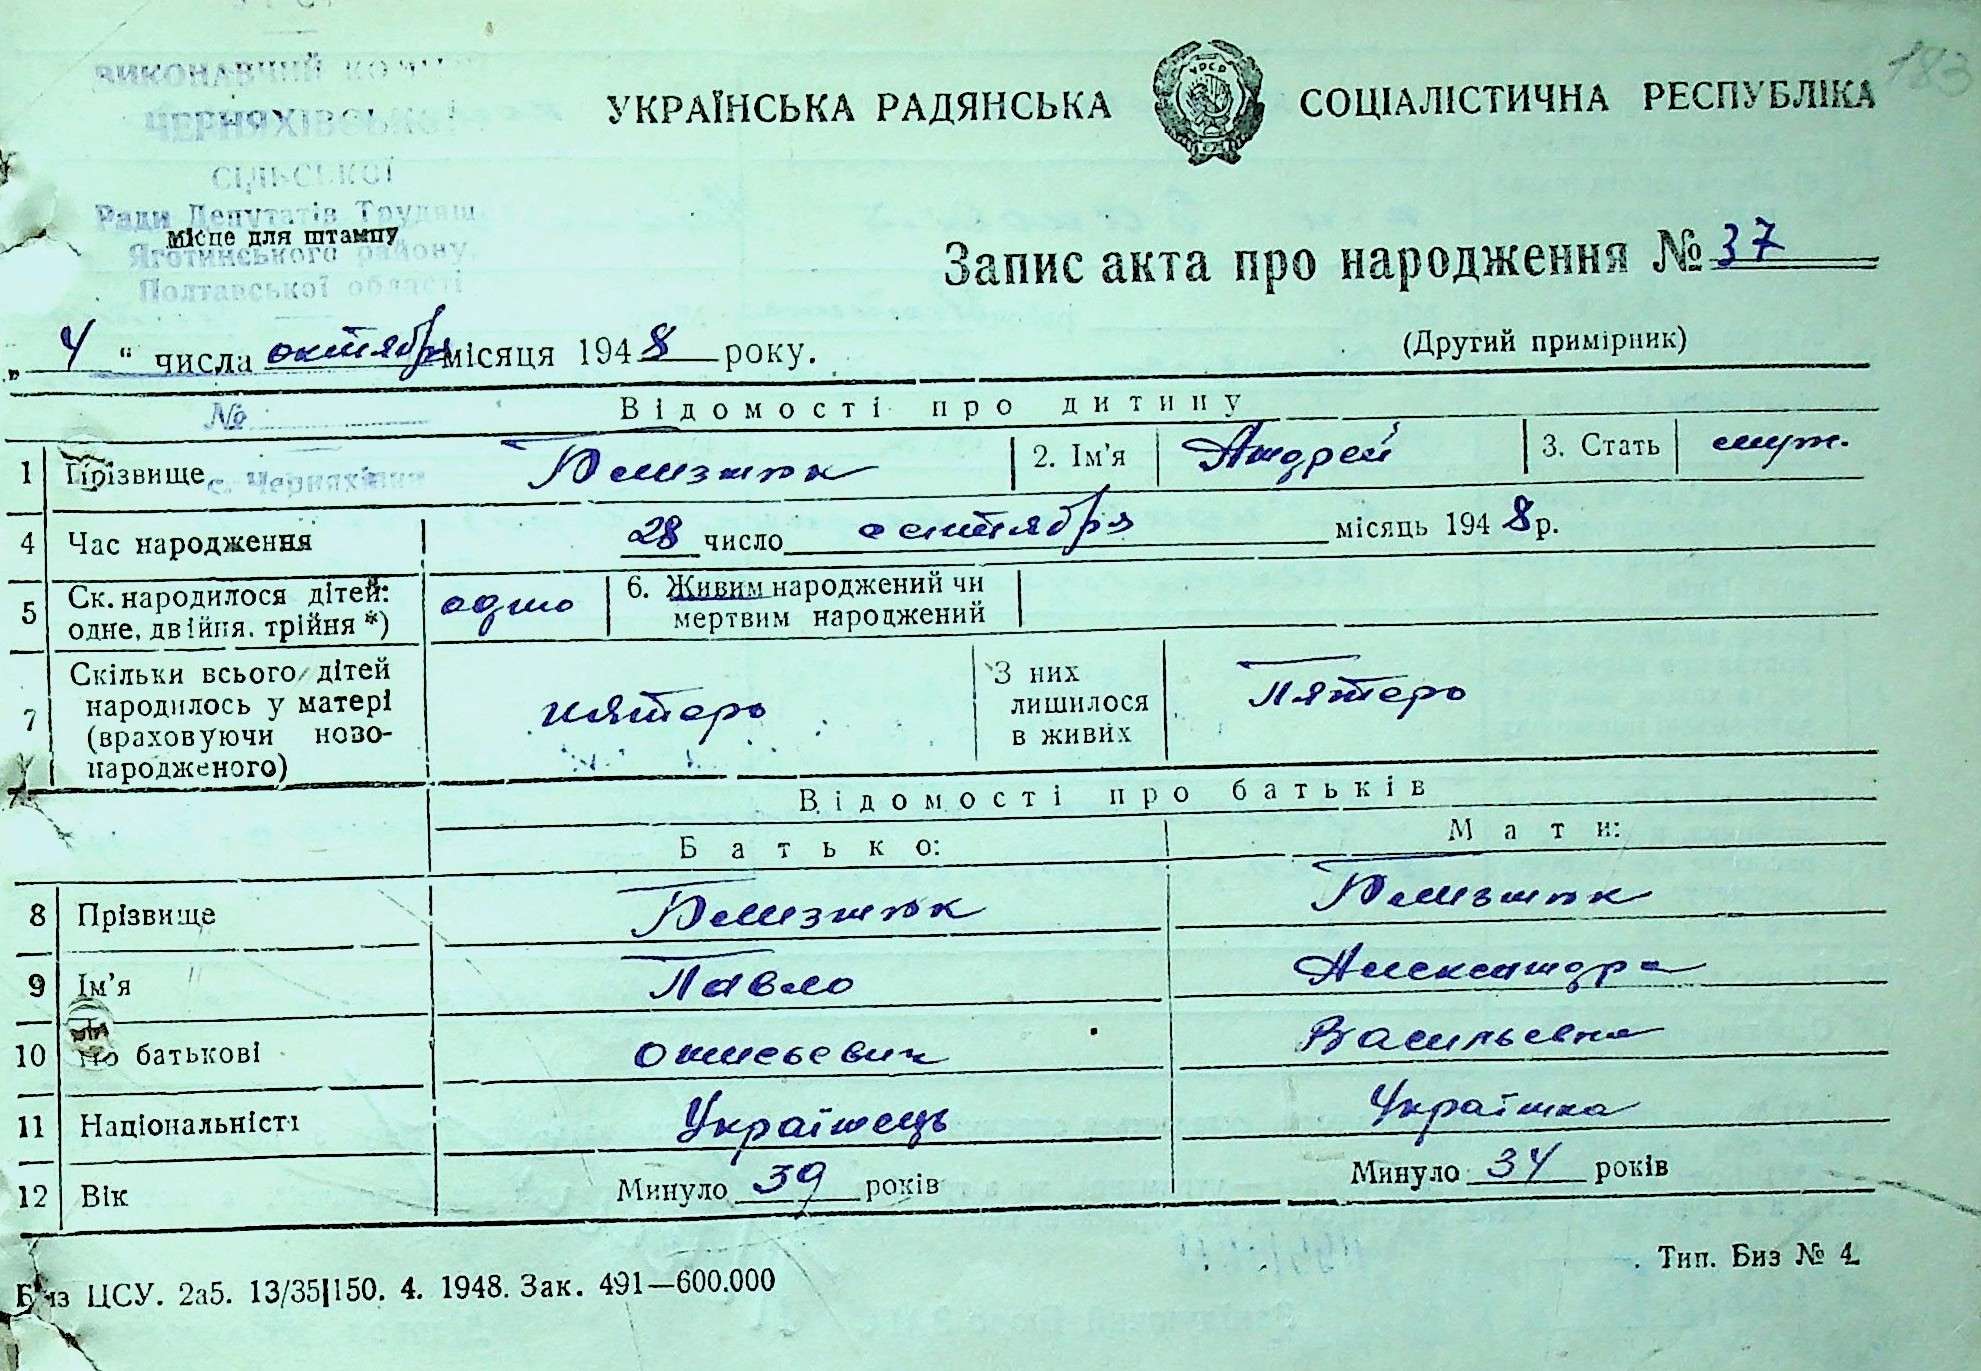 183
ВИКОНАВЧИЙ
ЧЕРНЯХІВСЬКОЇ
СІЛЬСЬКОЇ
Ради Депутатів Трудящ
Місце для штампу
Яготинського району,
Полтавської області
УКРАЇНСЬКА РАДЯНСЬКА СОЦІАЛІСТИЧНА РЕСПУБЛІКА
УРСР
Запис акта про народження № 37
„ 4 “ числа октября місяця 1948 року.
(Другий примірник)
№
Відомості про дитину
1 Прізвище Близнюк 2. Ім'я Андрей 3. Стать муж.
с. Черняхівка
4 Час народження 28 число сентября місяць 1948 р.
5 Ск. народилося дітей: одно 6. Живим народжений чи
одне, двійня, трійня *) мертвим народжений
7 Скільки всього дітей
народилось у матері
(враховуючи ново-
народженого)
пятеро
З них
лишилося
в живих
Пятеро
Відомості про батьків
Батько: Мати:
8 Прізвище Близнюк Близнюк
9 Ім'я Павло Александра
10 По батькові Васильевна
11 Національність Українець Українка
12 Вік Минуло 39 років Минуло 34 років
Биз ЦСУ. 2а5. 13/35|150. 4. 1948. Зак. 491—600.000
Тип. Биз № 4